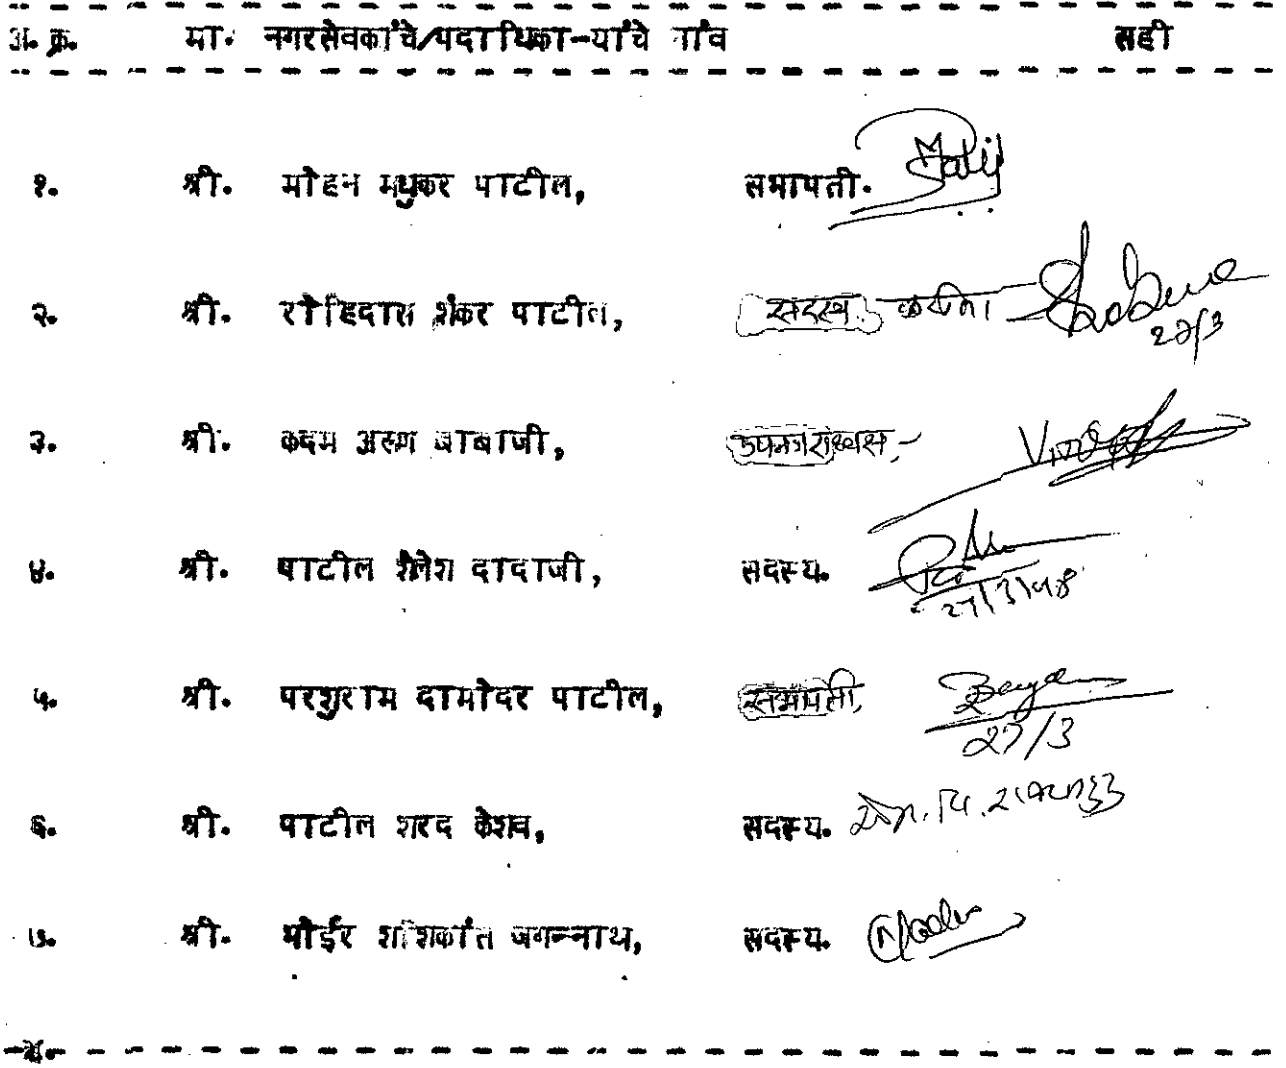 अ. क्र. मा. नगरसेवकांचे/पदाधिका-यांचे नांव सही
१. श्री. मोहन मधुकर पाटील, सभापती.
२. श्री. रोहिदास शंकर पाटील, सदस्य.
२७/३
३. श्री. कदम अरुण बाबाजी, उपनगराध्यक्ष,
४. श्री. पाटील शैलेश दादाजी, सदस्य.
27/3/98
५. श्री. परशुराम दामोदर पाटील, सभापती,
27/3
६. श्री. पाटील शरद केशव, सदस्य.
७. श्री. भोईर शशिकांत जगन्नाथ, सदस्य.